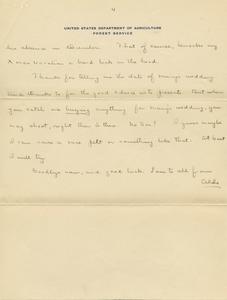 4
UNITED STATES DEPARTMENT OF AGRICULTURE
FOREST SERVICE
absence in December. That of course, knocks my
Xmas vacation a hard lick in the head.
Thanks for telling me the date of Mary's wedding
and thanks for the good advice with presents. That when
you catch me buying anything for Mary's wedding, you
may shoot, right then & there. No Sir! I guess maybe
I can save a nice pelt or something like that. At least
I will try.
Goodbye now, and good luck. Love to all from
Aldo